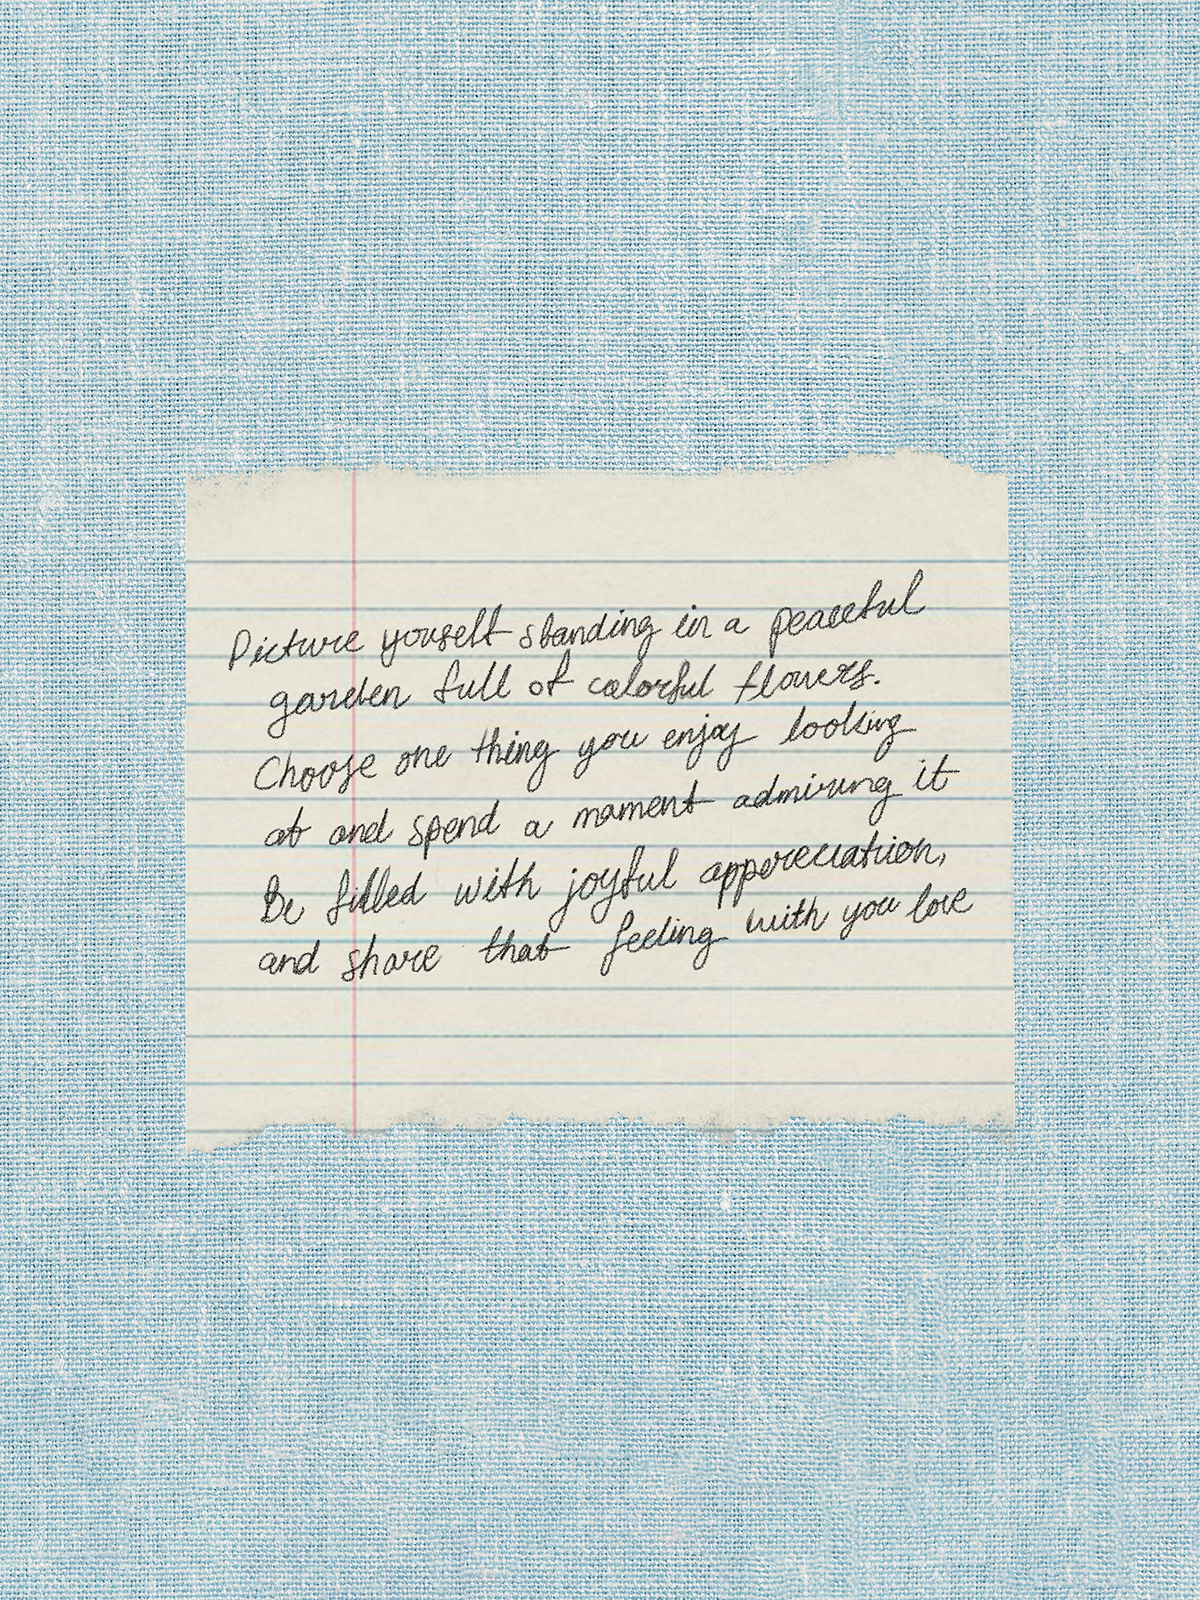 Picture youself standing in a peaceful
garden full of colorful flowers.
Choose one thing you enjoy looking
at and spend a mament admiring it
Be filled with joyful appereciation,
and share that feeling with you love